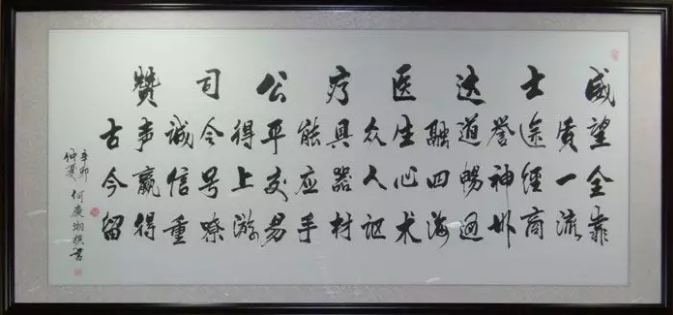 威望全靠
质一流
士途經商
誉神州
达道暢通
融四海
医生心术
众人讴
疗具器材
能应手
公平交易
得上游
司令号嘹
诚信重
赞声赢得
古今留
辛卯
仲夏
何慶撰書